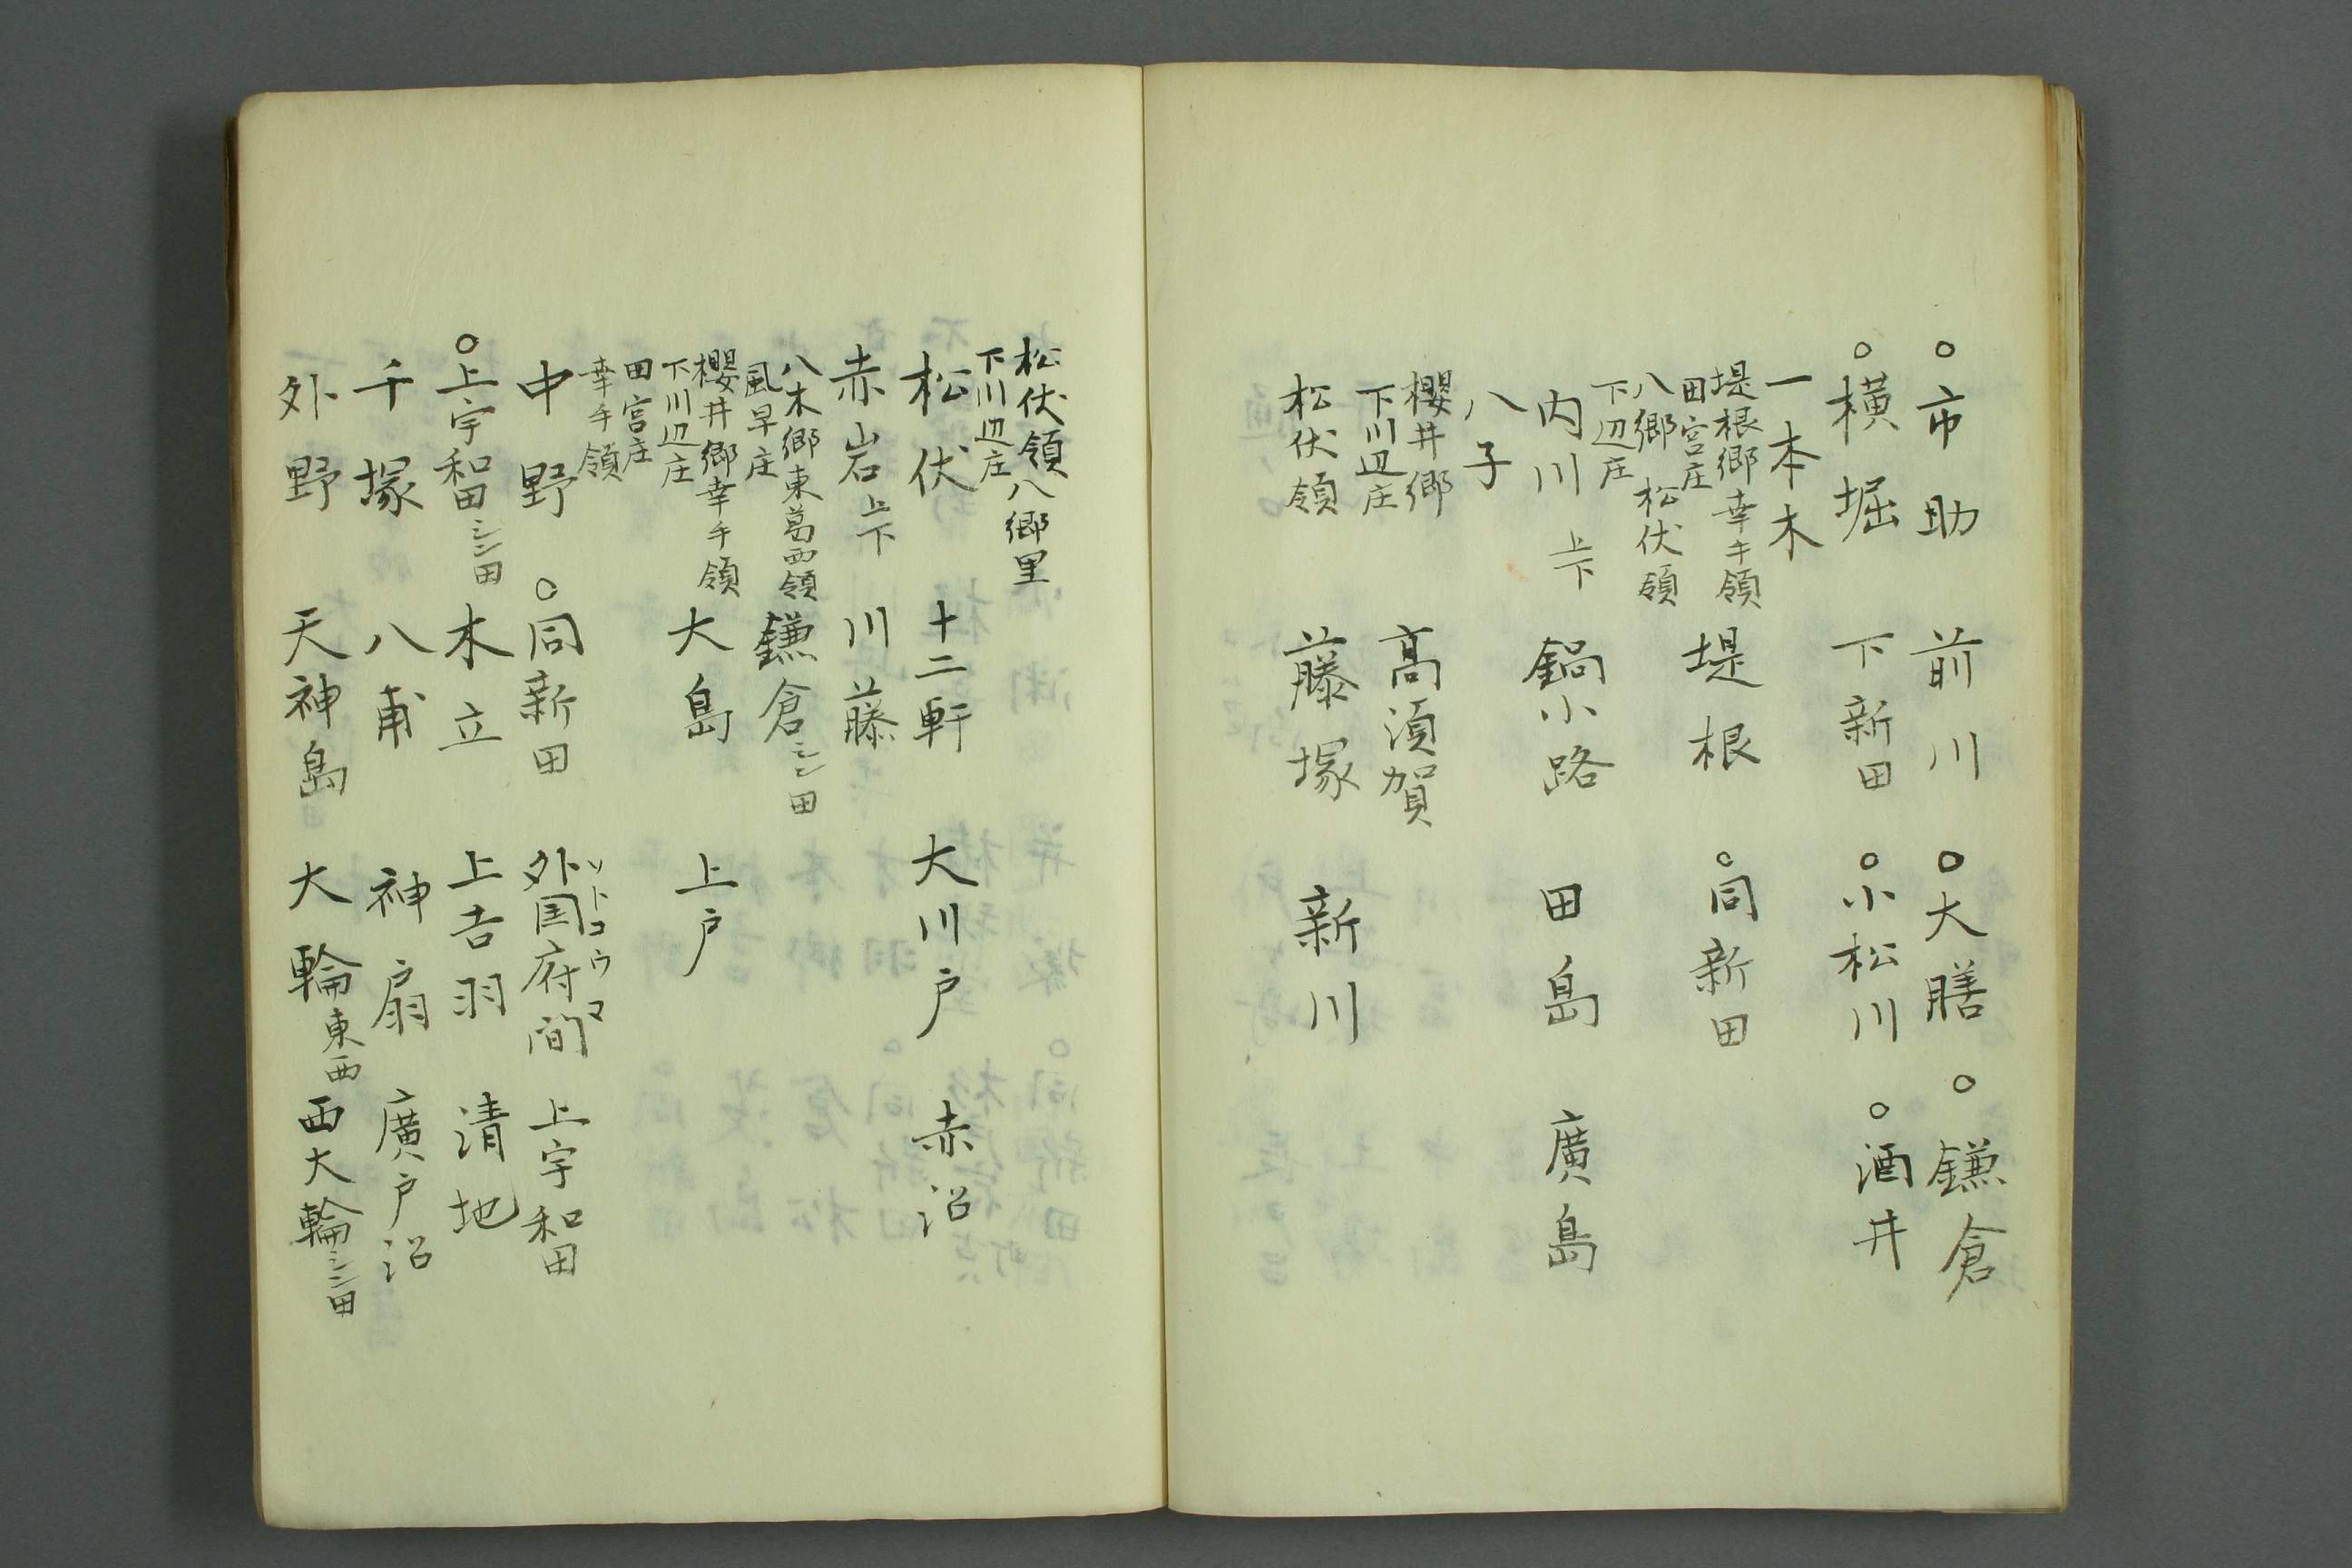 ○市助　前川　○大膳　○鎌倉
○横堀　下新田　○小松川　○酒井
一本木
堤根郷幸手領
田宮庄　堤根　○同新田
八郷　松伏領
下辺庄
内川上下　鍋小路　田島　廣島
八子
櫻井郷　高須賀
下川辺庄
松伏領　藤塚　新川
松伏領八郷里
下川辺庄
松伏　十二軒　大川戸　赤沼
赤岩上下　川藤
八木郷東葛西領
風早庄　鎌倉シン田
櫻井郷幸手領
下川辺庄　大島　上戸
田宮庄
幸手領
中野　○同新田　外国府間　上宇和田
ソトコウマ
○上宇和田シン田　木立　上吉羽　清地
千塚　八甫　神扇　廣戸沼
外野　天神島　大輪東西　西大輪シン田